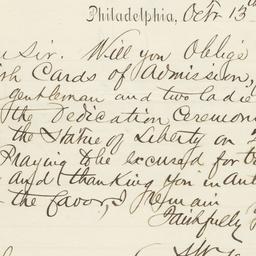 Philadelphia, Octr 13
Sir. Will you Oblige
Cards of Admission,
gentleman and two ladie
the Dedication Ceremoni
the Statue of Liberty on
Praying to be excused for
and thanking you in
the favor, I remain
Faithfully